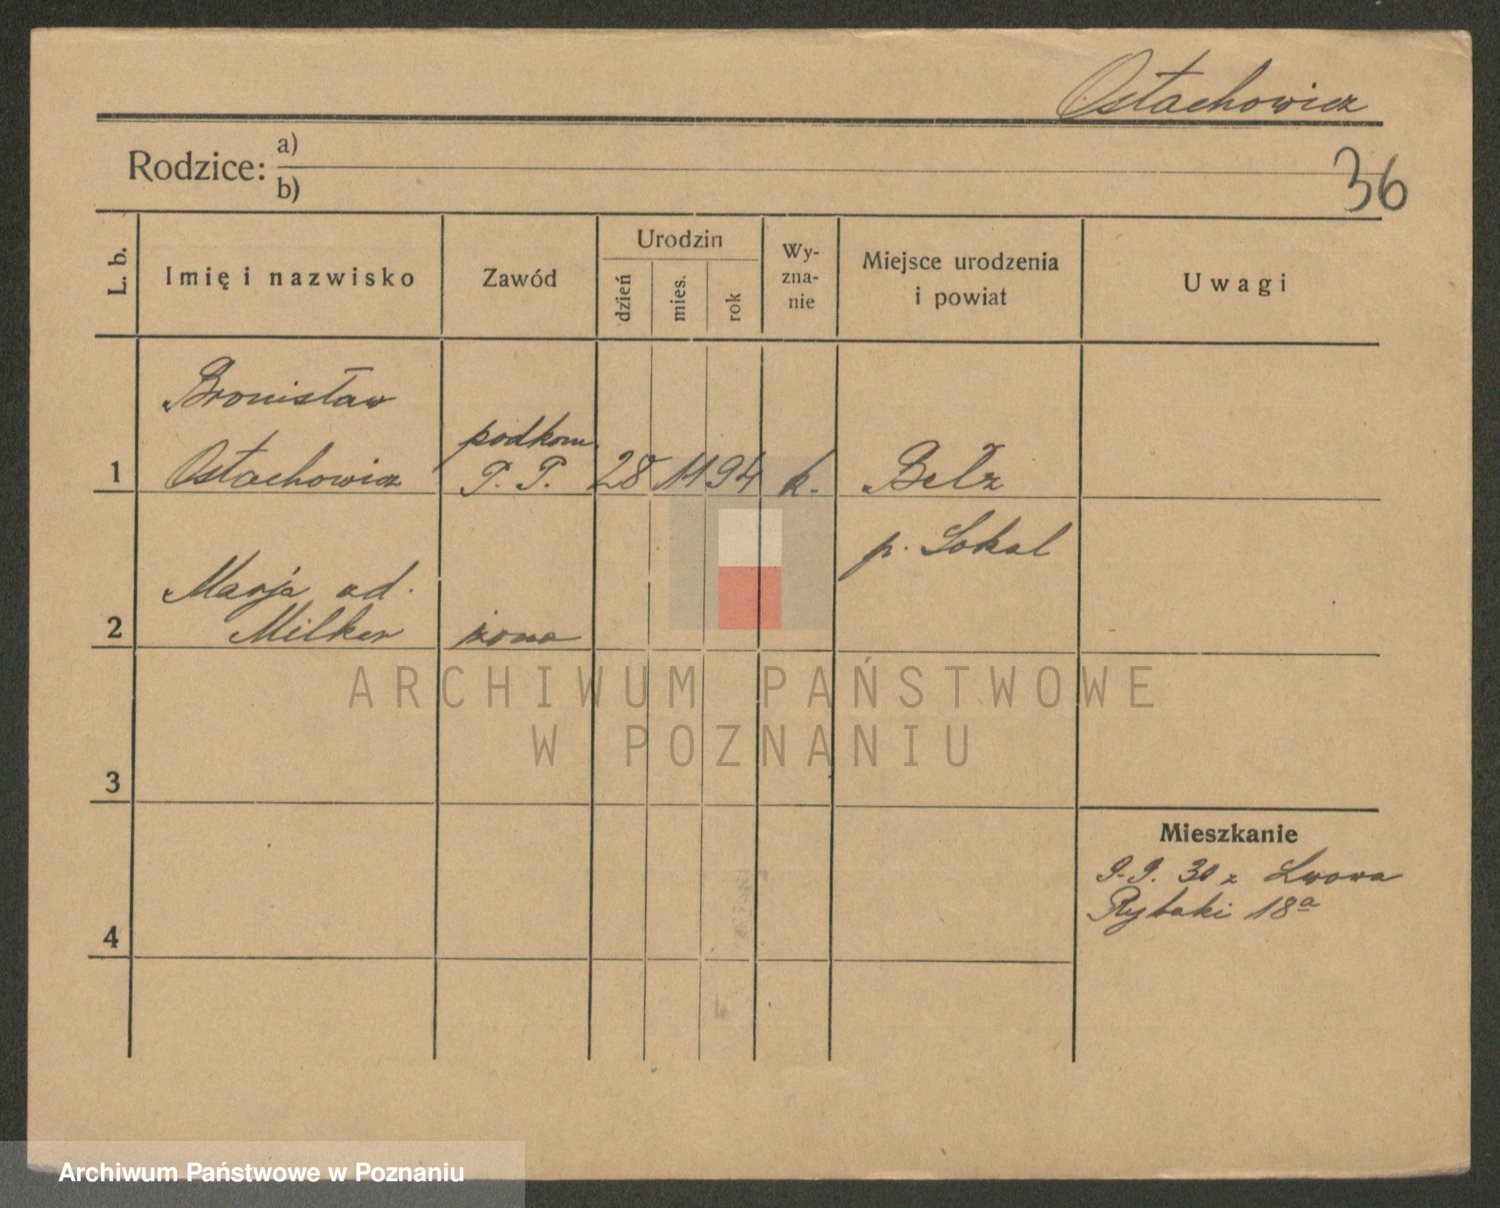 Ostachowicz
Rodzice: a)
b)
36
L. b.
Imię i nazwisko
Zawód
Urodzin
dzień
mies.
rok
Wy-
zna-
nie
Miejsce urodzenia
i powiat
Uwagi
Bronisław
podkom.
1 Ostachowicz P. P. 28 11 94 k. Bełz
p. Sokal
Marja ad.
2 Milker żona
3
Mieszkanie
9.9. 30 z Lwowa
Rybaki 18a
4
ARCHIWUM PAŃSTWOWE
W POZNANIU
Archiwum Państwowe w Poznaniu